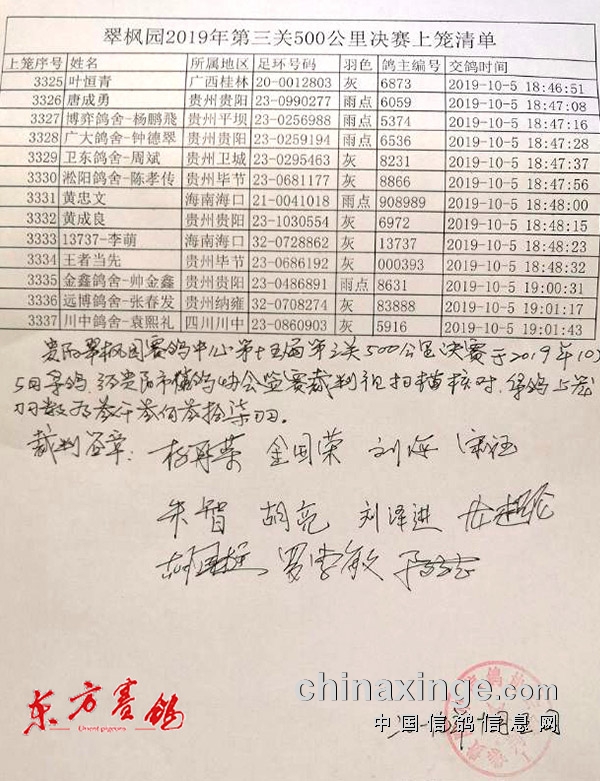 翠枫园2019年第三关500公里决赛上笼清单
上笼序号 姓名 所属地区 足环号码 羽色 鸽主编号 交鸽时间
3325 叶恒青 广西桂林 20-0012803 灰 6873 2019-10-5 18:46:51
3326 唐成勇 贵州贵阳 23-0990277 雨点 6059 2019-10-5 18:47:08
3327 博弈鸽舍-杨鹏飛 贵州平坝 23-0256988 雨点 5374 2019-10-5 18:47:16
3328 广大鸽舍-钟德翠 贵州贵阳 23-0259194 雨点 6536 2019-10-5 18:47:28
3329 卫东鸽舍-周斌 贵州卫城 23-0295463 灰 8231 2019-10-5 18:47:37
3330 淞阳鸽舍-陈孝传 贵州毕节 23-0681177 灰 8866 2019-10-5 18:47:56
3331 黄忠文 海南海口 21-0041018 雨点 908989 2019-10-5 18:48:00
3332 黄成良 贵州贵阳 23-1030554 灰 6972 2019-10-5 18:48:15
3333 13737-李萌 海南海口 32-0728862 灰 13737 2019-10-5 18:48:23
3334 王者当先 贵州毕节 23-0686192 灰 000393 2019-10-5 18:48:32
3335 金鑫鸽舍-帅金鑫 贵州贵阳 23-0486891 雨点 8631 2019-10-5 19:00:31
3336 远博鸽舍-张春发 贵州纳雍 32-0708274 灰 83888 2019-10-5 19:01:17
3337 川中鸽舍-袁熙礼 四川川中 23-0860903 灰 5916 2019-10-5 19:01:43
贵阳翠枫园赛鸽中心第十五届第三关500公里决赛于2019年10月
5日集鸽,经贵阳市信鸽协会监赛裁判组扫描核对,集鸽上笼
羽数为叁仟叁佰叁拾柒羽。
裁判签章: 杨再荣 金国荣 刘海
朱智 胡亮 刘泽进
罗李敏
东方赛鸽
Orient pigeons
chinaxinge.com
中国信鸽信息网